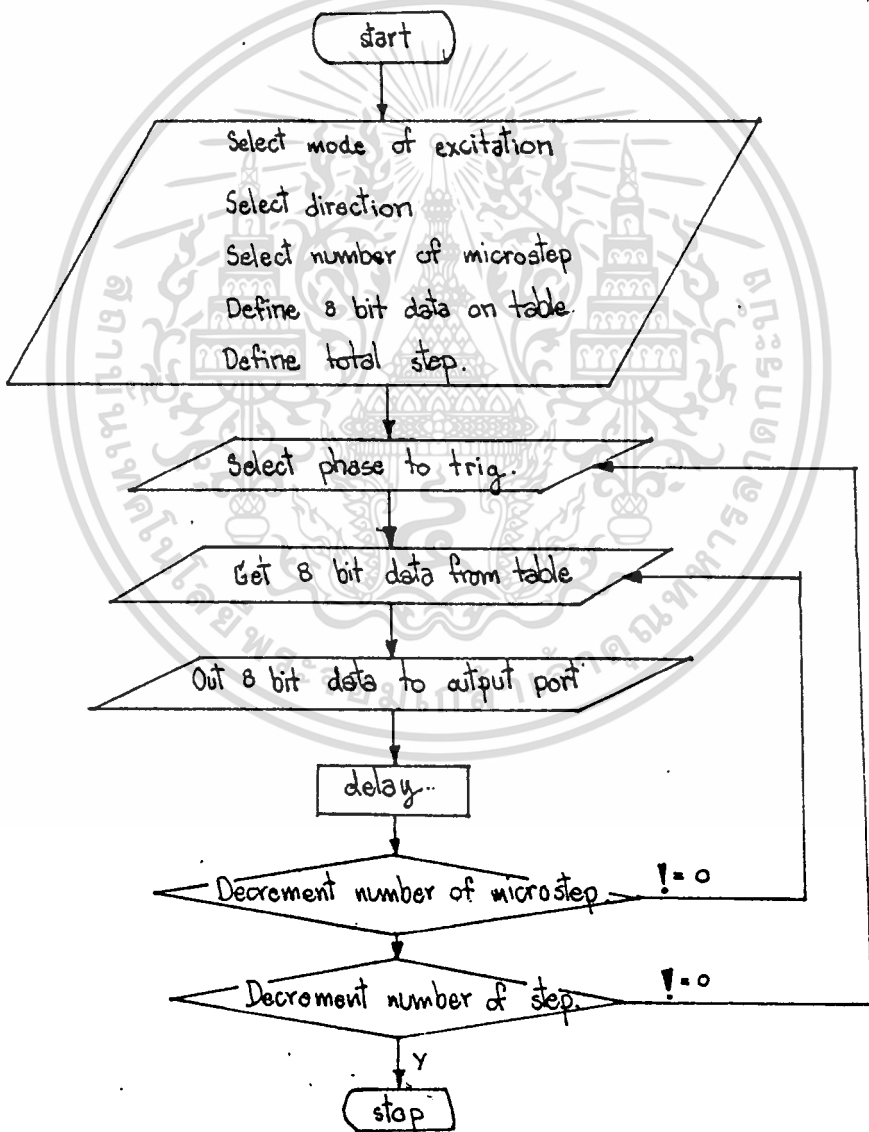 start
Select mode of excitation
Select direction
Select number of microstep
Define 8 bit data on table.
Define total step.
Select phase to trig.
Get 8 bit data from table
Out 8 bit data to output port
delay..
Decrement number of microstep.
!= 0
Decrement number of step.
!= 0
Y
stop